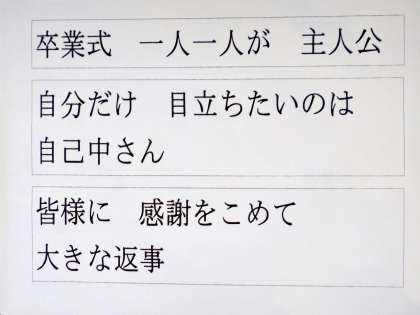 卒業式　一人一人が　主人公
自分だけ　目立ちたいのは
自己中さん
皆様に　感謝をこめて
大きな返事